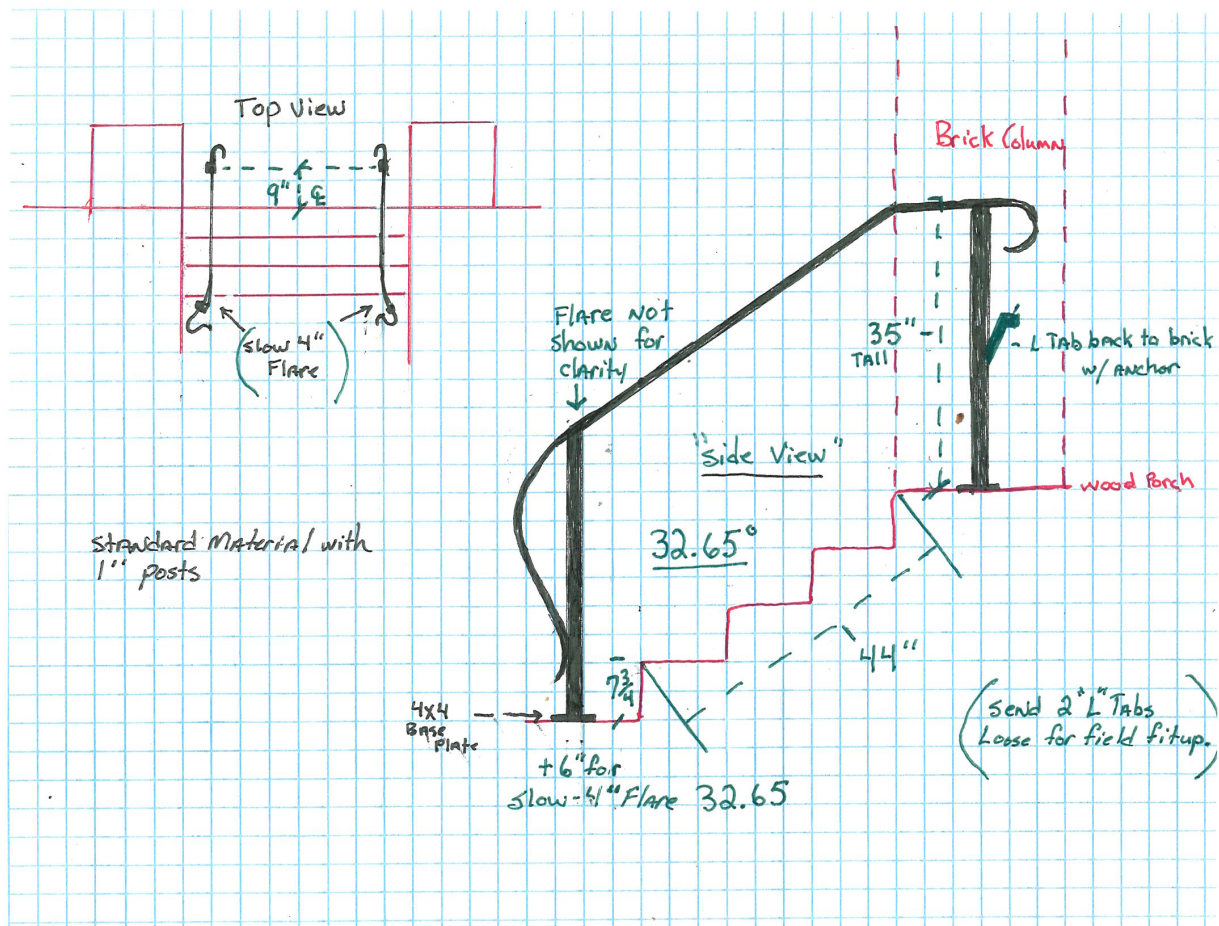 Top View
9" ℄
(slow 4"
Flare)
Brick Column
Flare Not
shown for
clarity
35"
TAll
L TAb back to brick
w/ Anchor
"Side View"
wood Porch
Standard Material with
1" posts
32.65°
44"
7 3/4
4x4
Base
Plate
+6" for
slow-4" Flare 32.65
(Send 2 "L" Tabs
Loose for field fitup.)